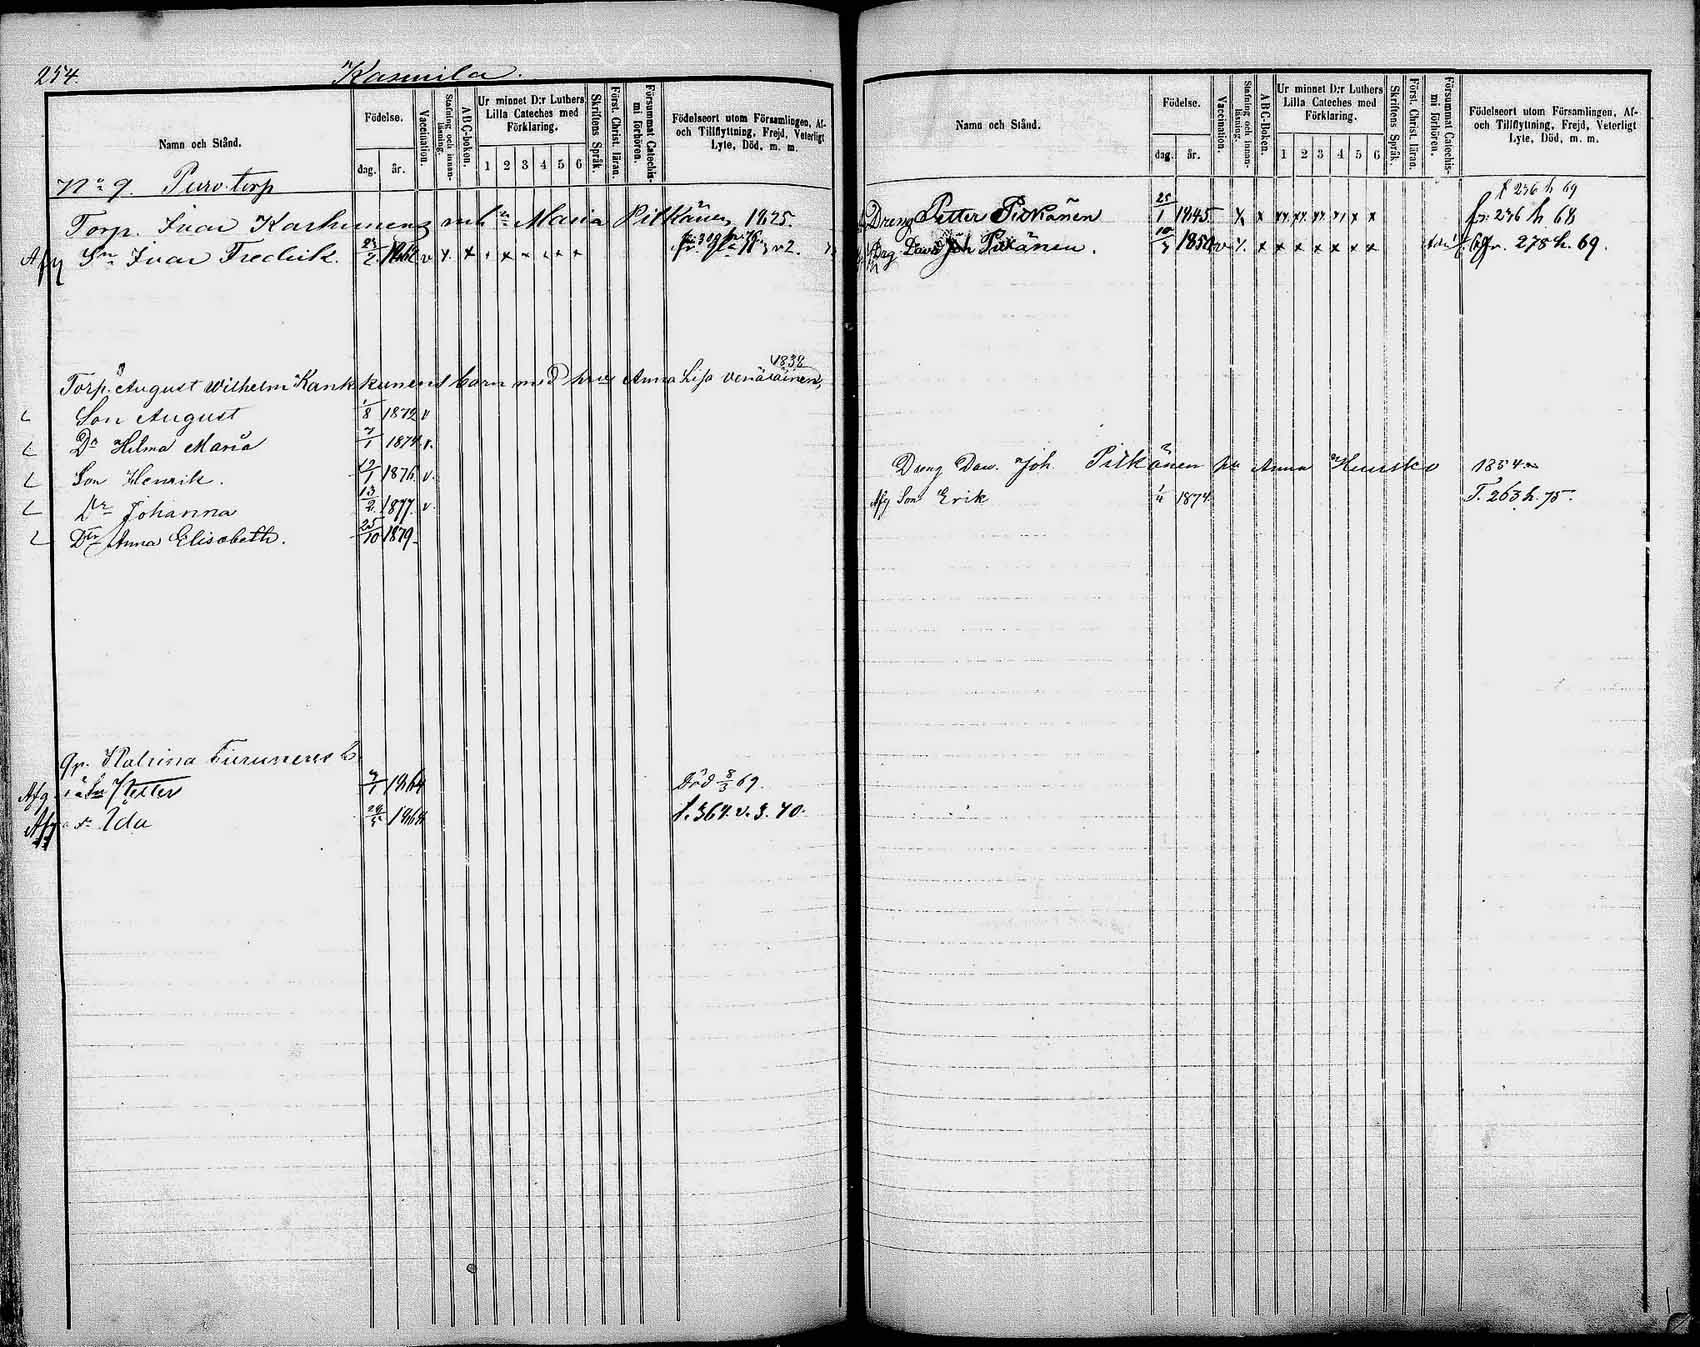 254.
Kasurila.
Namn och Stånd.
Födelse.
dag.
år.
Vaccination.
Stafning och innan-läsning.
A B C-boken.
Ur minnet D:r Luthers
Lilla Cateches med
Förklaring.
1 2 3 4 5 6
Skriftens Språk.
Först. Christ. läran.
Försummat Catechis-
mi förhören.
Födelseort utom Församlingen, Af-
och Tillflyttning, Frejd, Veterligt
Lyte, Död, m. m.
No 9. Puro torp
Torp. Ivar Maria Pitkänen, 1825.
Afg Sn Ivar Fredrik. v
1838
Torp. August Wilhelm Kankkunens barn med hru Anna Lisa Venäläinen,
Son August 1/8 1872 v
Dr Hilma Maria 7/1 1874 v.
Son Henrik. 12/1 1876 v.
Dr Johanna 13/2 1877. v.
Dtr Anna Elisabeth. 25/10 1879
Katrina Turunens b.
Afg. Petter 1864 Död 8/3 69.
Afg Ida 1868 f. 364. v. 3. 70.
Namn och Stånd.
Födelse.
dag.
år.
Vaccination.
Stafning och innan-läsning.
A B C-boken.
Ur minnet D:r Luthers
Lilla Cateches med
Förklaring.
1 2 3 4 5 6
Skriftens Språk.
Först. Christ. läran.
Försummat Catechis-
mi förhören.
Födelseort utom Församlingen, Af-
och Tillflyttning, Frejd, Veterligt
Lyte, Död, m. m.
236 h 69
Dreng Petter Pitkänen 25/1 1845 x x x x x x fr. 236 h 68
Joh Pitkänen. 1850 v x x x x x x x fr. 278 h. 69.
Dreng Daw. Joh Pitkänen Anna 1854
Afg Son Erik 1874 T. 263 h. 75.